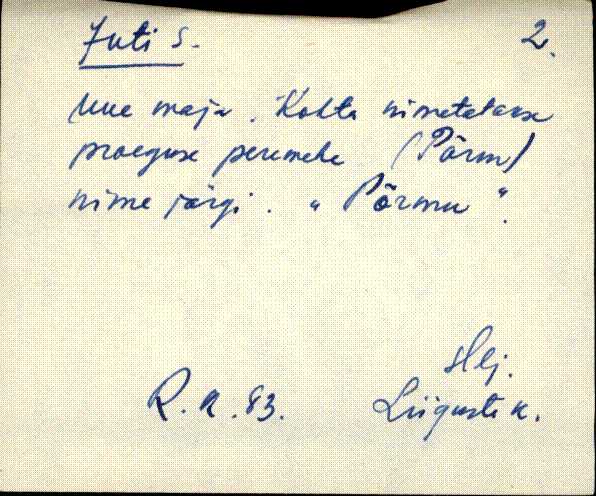 Juti s.
2.
Uue maja. Kohta nimetatakse
praeguse peremehe (Põrm)
nime järgi. „Põrmu“.
Hlj.
R.K.83.
Liiguste k.